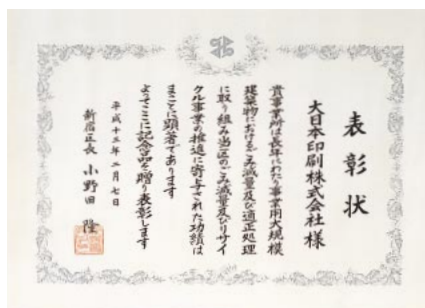 表彰状
大日本印刷株式会社様
貴事業所は長年にわたり事業用大規模
建築物におけるごみ減量及び適正処理
に取り組み当区のごみ減量及びリサイ
クル事業の推進に寄与された功績は
まことに顕著であります
よってここに記念品を贈り表彰します
平成十三年二月七日
新宿区長 小野田 隆